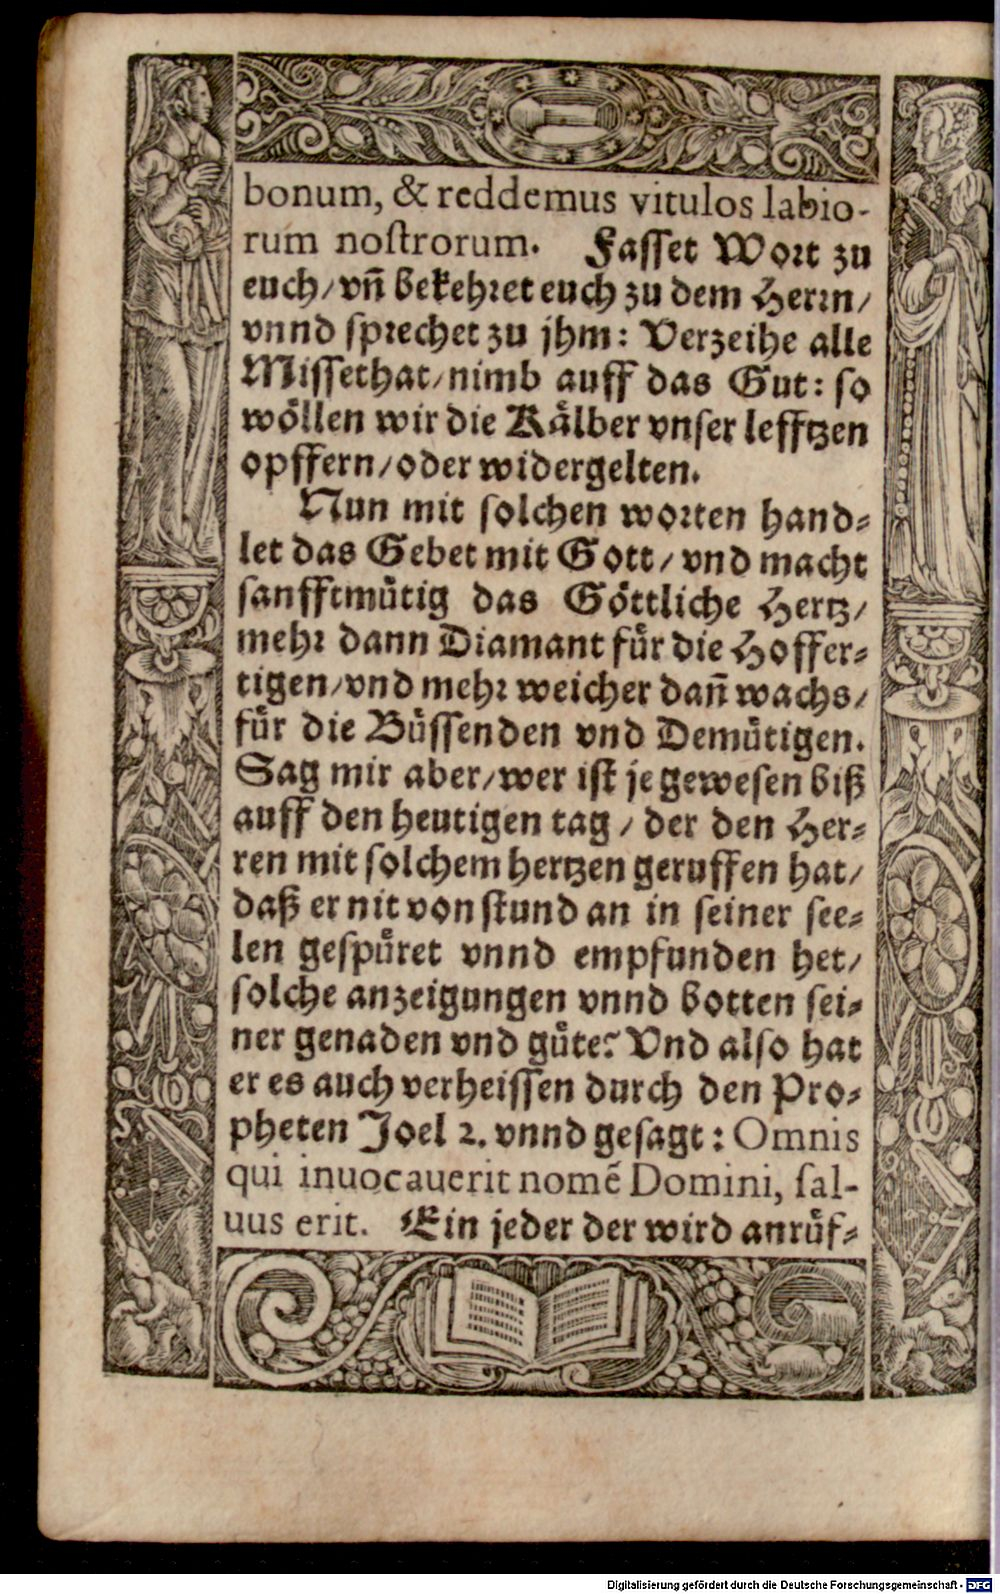 bonum, & reddemus vitulos labio-
rum noſtrorum. Faſſet Wort zu
euch/ vñ bekehret euch zu dem Herꝛn/
vnnd ſpꝛechet zu jhm: Verzeihe alle
Miſſethat/ nimb auff das Gut: ſo
woͤllen wir die Kaͤlber vnſer lefftzen
opffern/ oder widergelten.
Nun mit ſolchen woꝛten hand⸗
let das Gebet mit Gott/ vnd macht
ſanfftmuͤtig das Goͤttliche Hertz/
mehꝛ dann Diamant fuͤr die Hoffer⸗
tigen/ vnd mehꝛ weicher dañ wachs/
fuͤr die Buͤſſenden vnd Demuͤtigen.
Sag mir aber/ wer iſt je geweſen biß
auff den heutigen tag / der den Her⸗
ren mit ſolchem hertzen geruffen hat/
daß er nit von ſtund an in ſeiner ſee⸗
len geſpuͤret vnnd empfunden het/
ſolche anzeigungen vnnd botten ſei⸗
ner genaden vnd guͤte? Vnd alſo hat
er es auch verheiſſen durch den Pro⸗
pheten Joel 2. vnnd geſagt: Omnis
qui inuocauerit nomē Domini, ſal-
uus erit. Ein jeder der wird anruͤf⸗
Digitalisierung gefördert durch die Deutsche Forschungsgemeinschaft - DFG